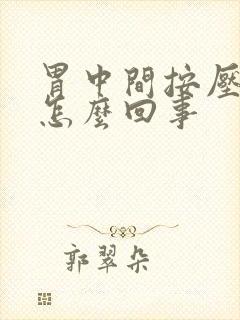 胃中間按壓
怎麼回事
郭翠朵